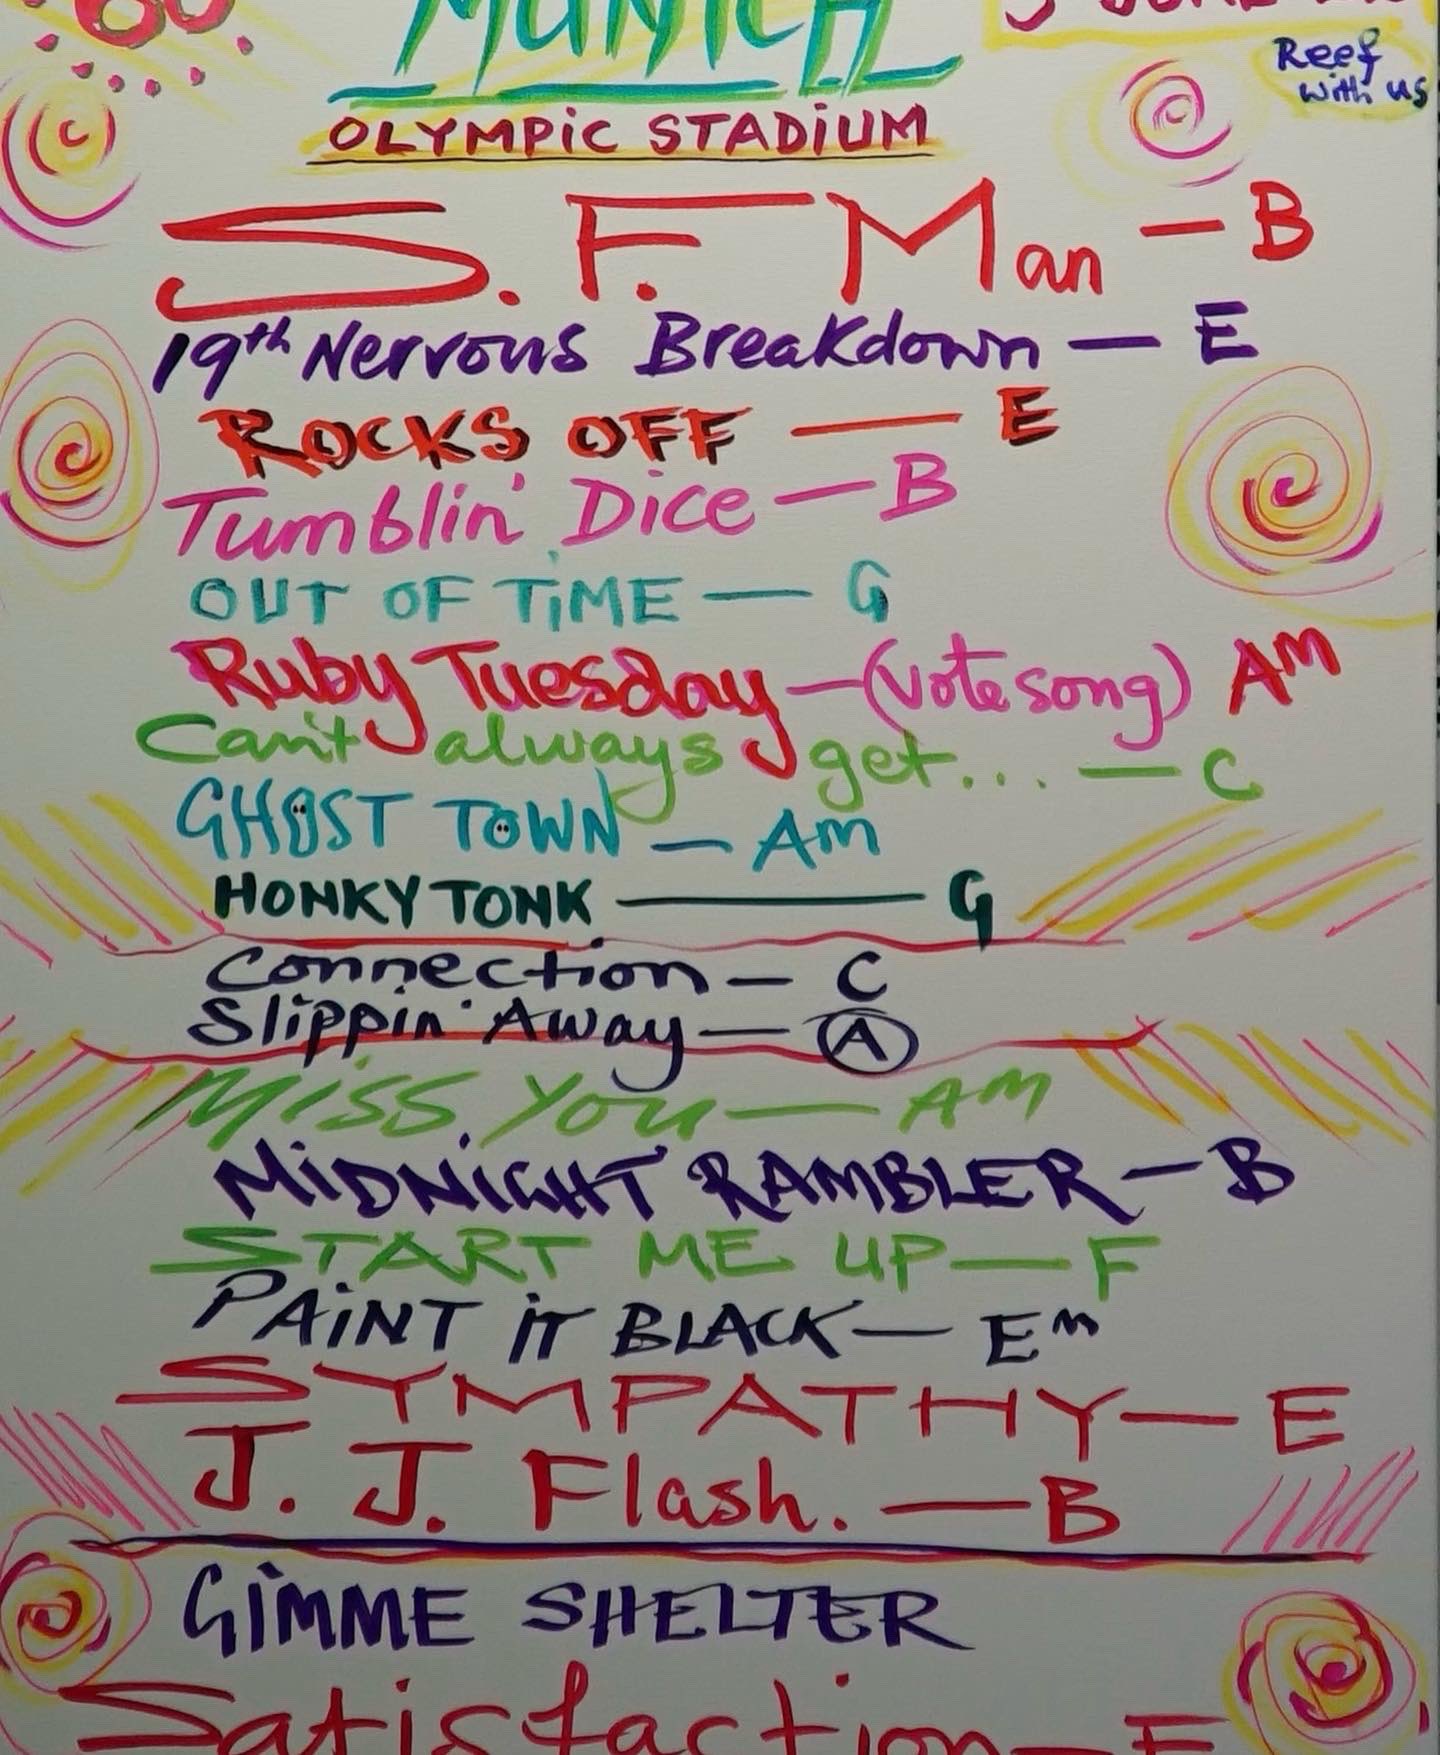 60
MUNICH
5 JUNE
Reef
with us
OLYMPiC STADiUM
S. F. Man — B
19th Nervous Breakdown — E
ROCKS OFF — E
Tumblin' Dice — B
OUT OF TiME — G
Ruby Tuesday — (vote song) AM
Can't always get... — C
GHOST TOWN — Am
HONKY TONK — G
Connection — C
Slippin' Away — A
Miss You — AM
MiDNiGHT RAMBLER — B
START ME UP — F
PAiNT iT BLACK — Em
SYMPATHY — E
J. J. Flash. — B
GiMME SHELTER
Satisfaction — E